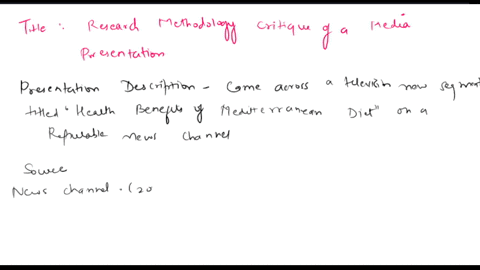 Title : Research Methodology Critique of a Media
Presentation
Presentation Description - Come across a television now segmen
titled "Health Benefits of Mediterranean Diet" on a
Reputable news channel
Source
News channel . (20